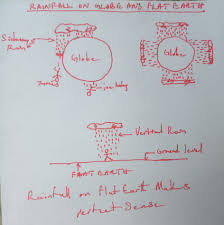 RAINFALL ON GLOBE AND FLAT EARTH
Sideways
Rain
Globe
Globe
Vertical Rain
Ground level
FLAT EARTH
Rainfall on Flat Earth Makes
perfect Sense